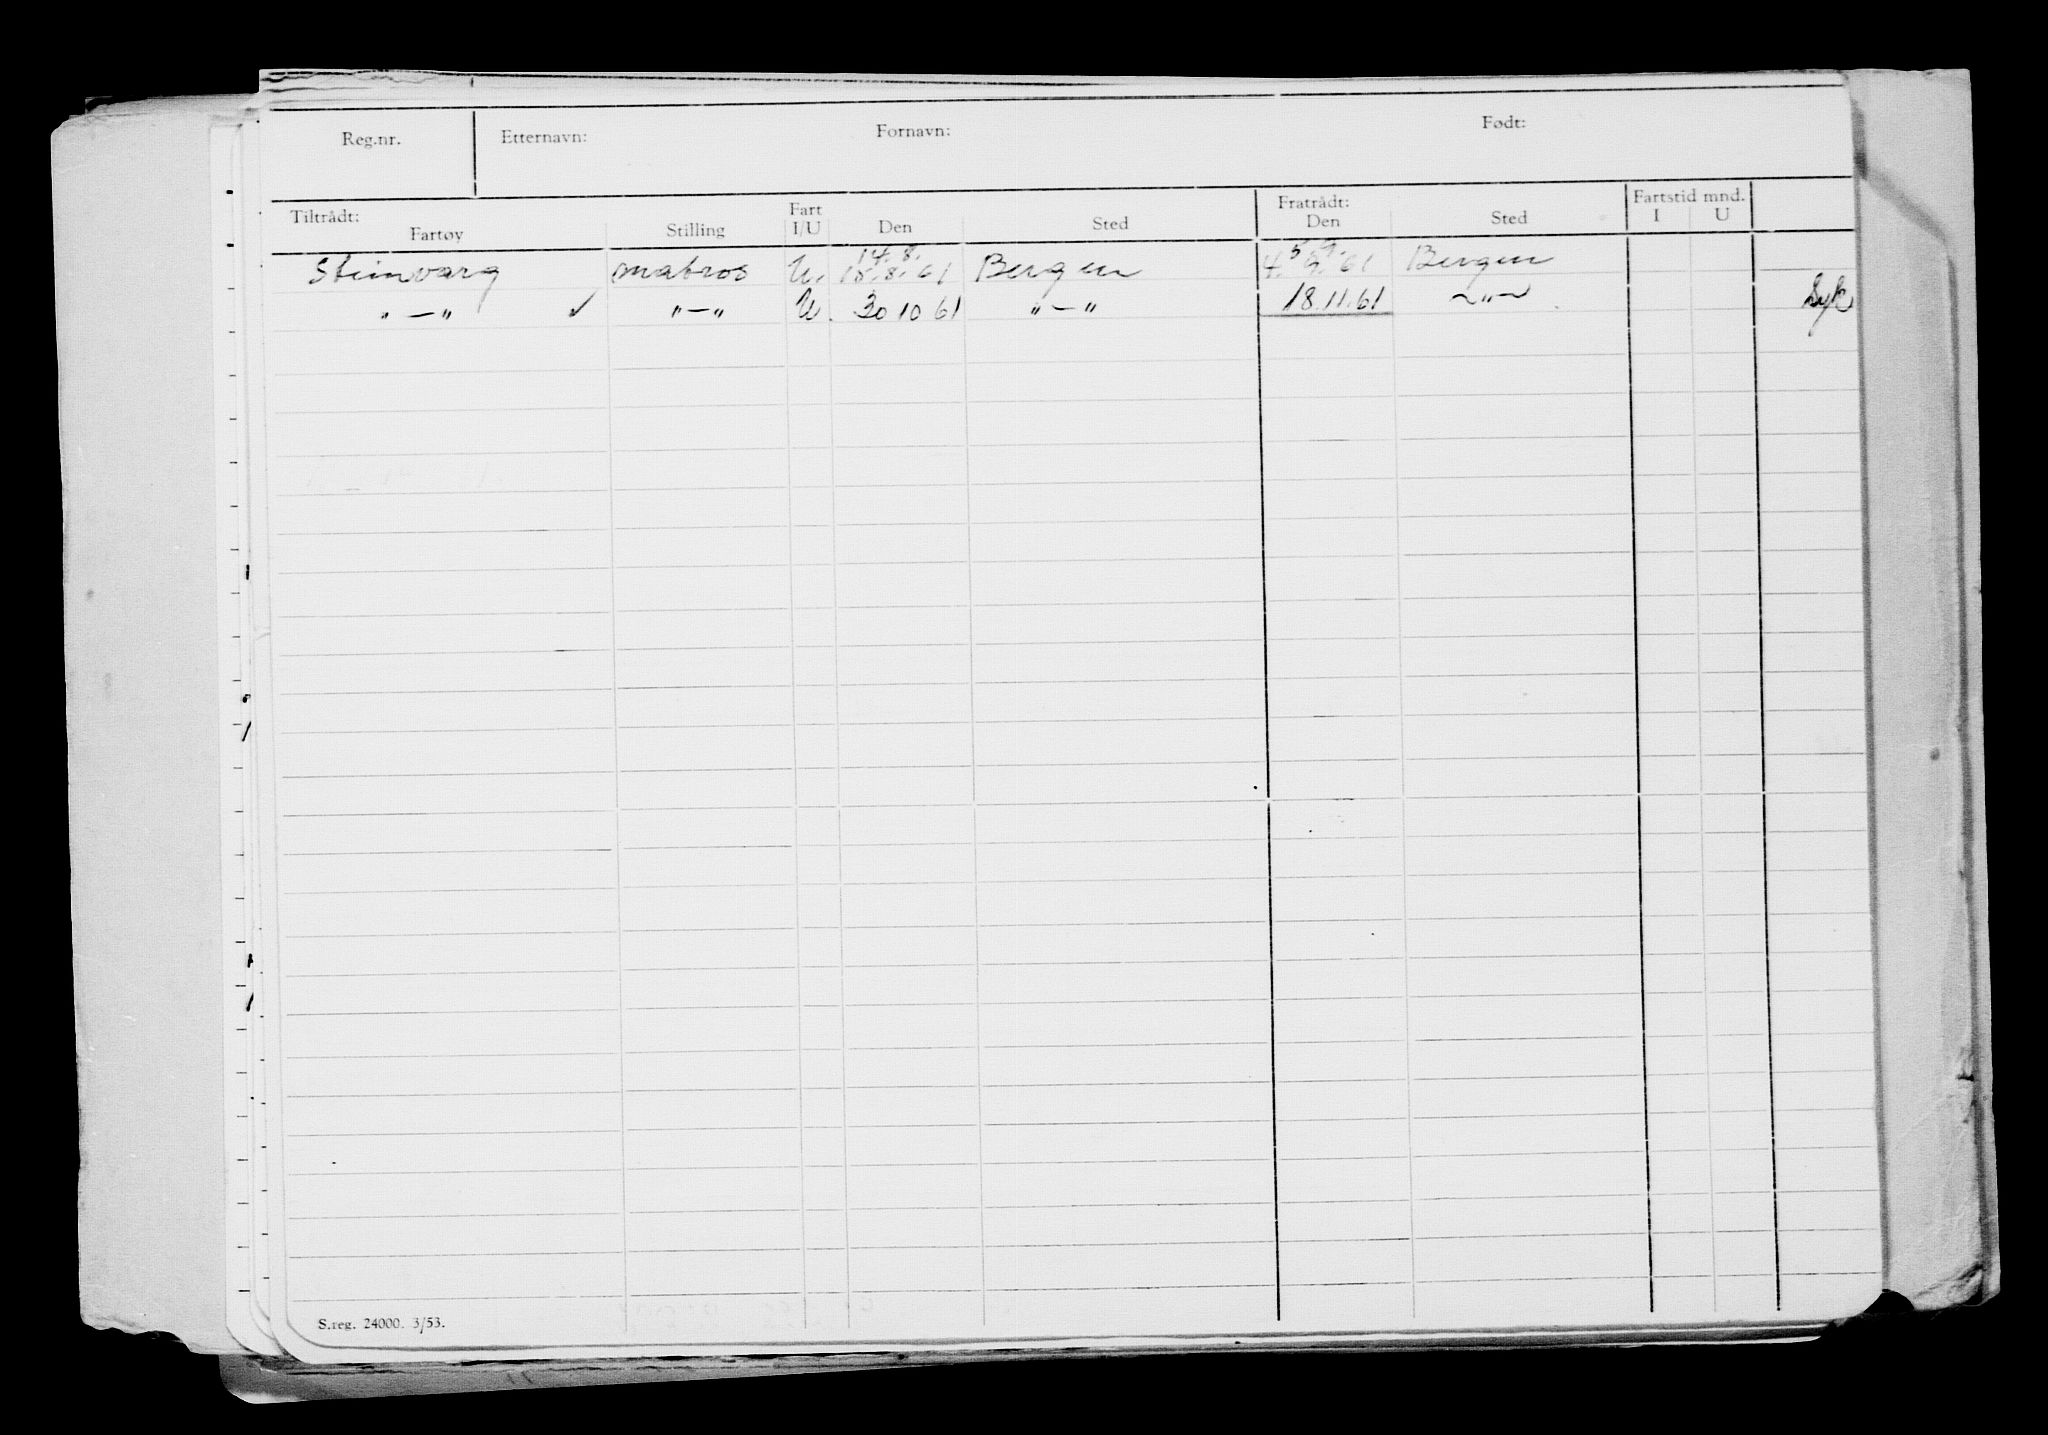 Reg.nr. Etternavn: Fornavn: Født:
Tiltrådt: Fart Fratrådt: Fartstid mnd.
Fartøy Stilling I/U Den Sted Den Sted I U
14.8. 5.9.
Steinvarg matros U. 15.8.61 Bergen 4. 9. 61 Bergen
" — " ✓ " — " U. 30 10 61 " — " 18.11.61 — " — Syk
S.reg. 24000. 3/53.